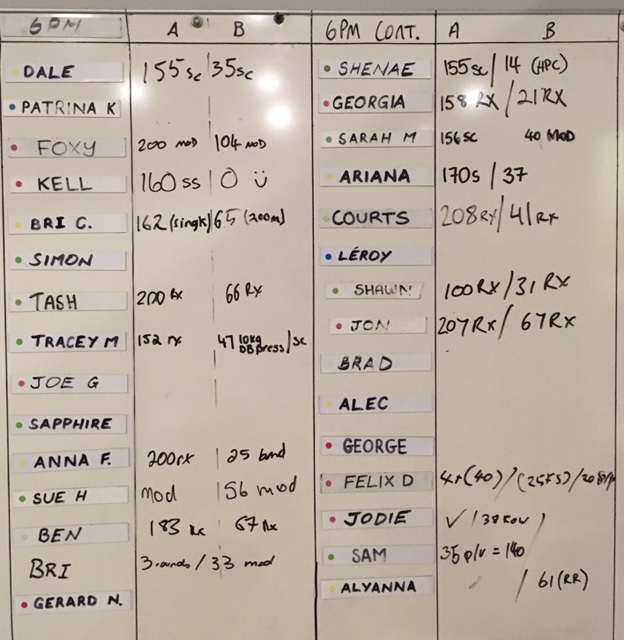 6PM A B
DALE 155 sc 35 sc
PATRINA K
FOXY 200 MOD 104 MOD
KELL 160 ss 0 ü
BRI C. 162 (single) 65 (200m)
SIMON
TASH 200 Rx 66 Rx
TRACEY M 152 rx 47 10kg DB press/sc
JOE G
SAPPHIRE
ANNA F. 200rx 25 band
SUE H mod 56 mod
BEN 183 Rx 67 Rx
BRI 3 rounds / 33 mod
GERARD N.
6PM CONT. A B
SHENAE 155 sc / 14 (HPC)
GEORGIA 158 RX / 21 RX
SARAH M 156 SC 40 MOD
ARIANA 170s / 37
COURTS 208 RX / 41 RX
LEROY
SHAWN 100 RX / 31 RX
JON 207 RX / 67 RX
BRAD
ALEC
GEORGE
FELIX D (40) /
JODIE ✓ /
SAM 35 = 140
ALYANNA / 61 (RR)